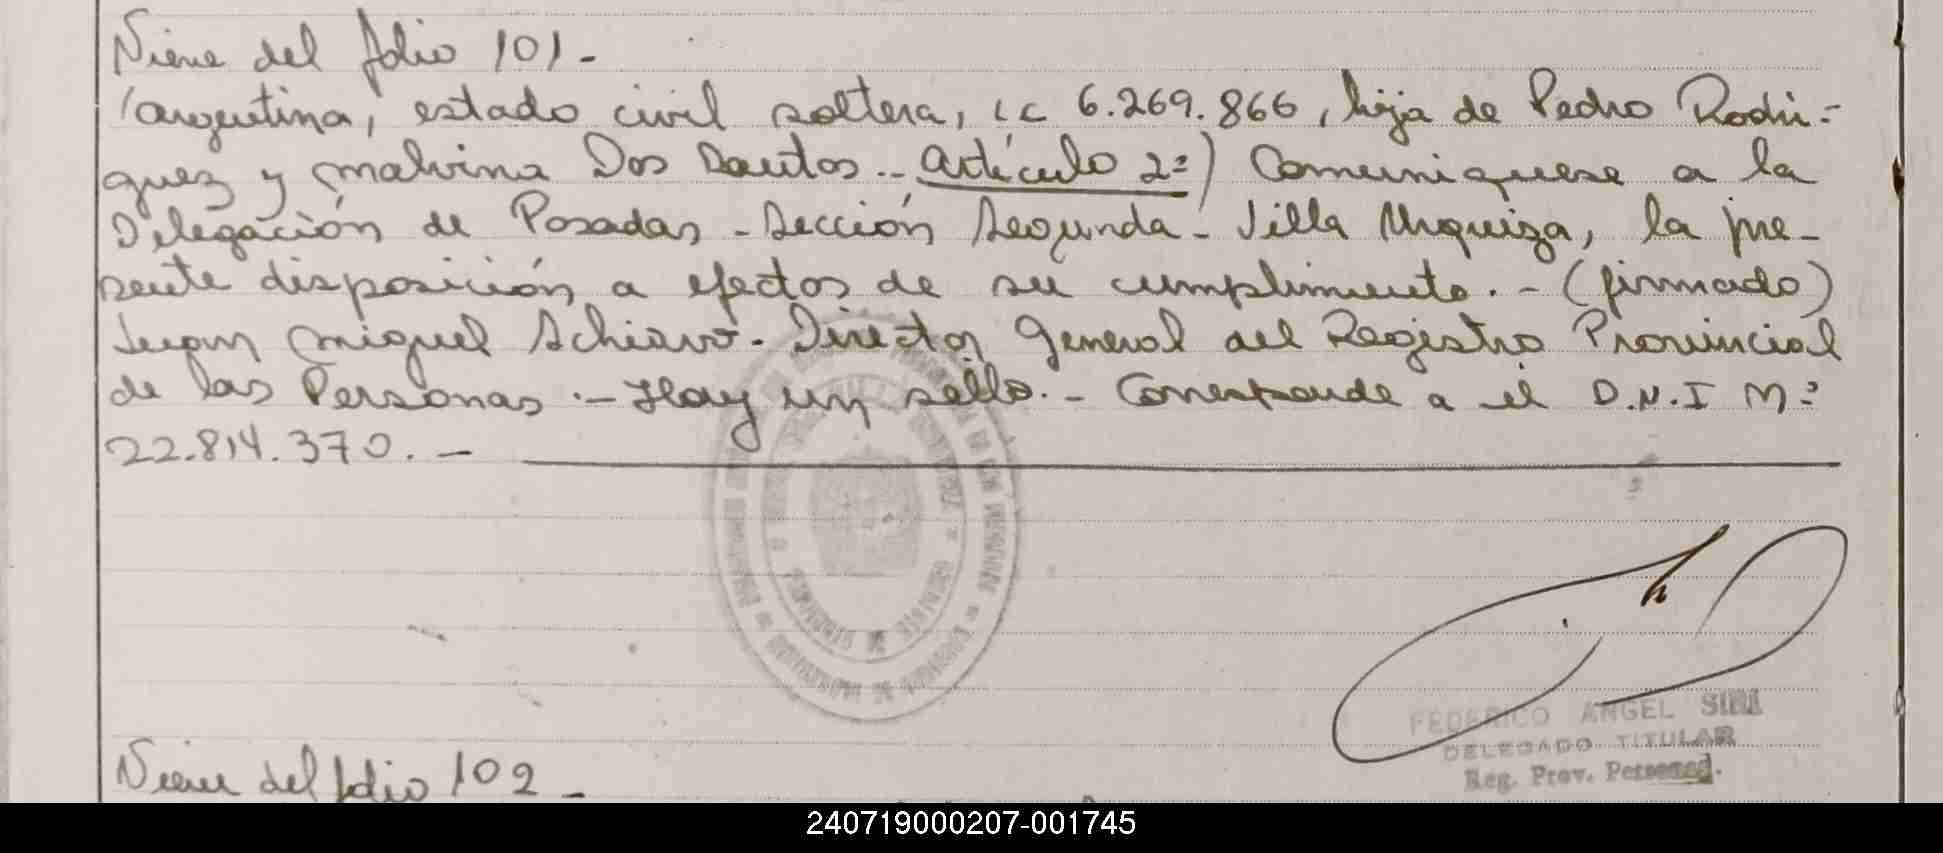 Viene del folio 101.-
/argentina, estado civil soltera, LC 6.269.866, hija de Pedro Rodri-
guez y Malvina Dos Santos.- Artículo 2º) Comuniquese a la
Delegación de Posadas - Sección Segunda - Villa Urquiza, la pre-
sente disposición a efectos de su cumplimiento.- (firmado)
Juan Miguel Schiavo - Director General del Registro Provincial
de las Personas.- Hay un sello.- Corresponde a el D.N.I Nº
22.814.370.-
FEDERICO ANGEL SIRI
DELEGADO TITULAR
Reg. Prov. Personas
Viene del folio 102 -
240719000207-001745